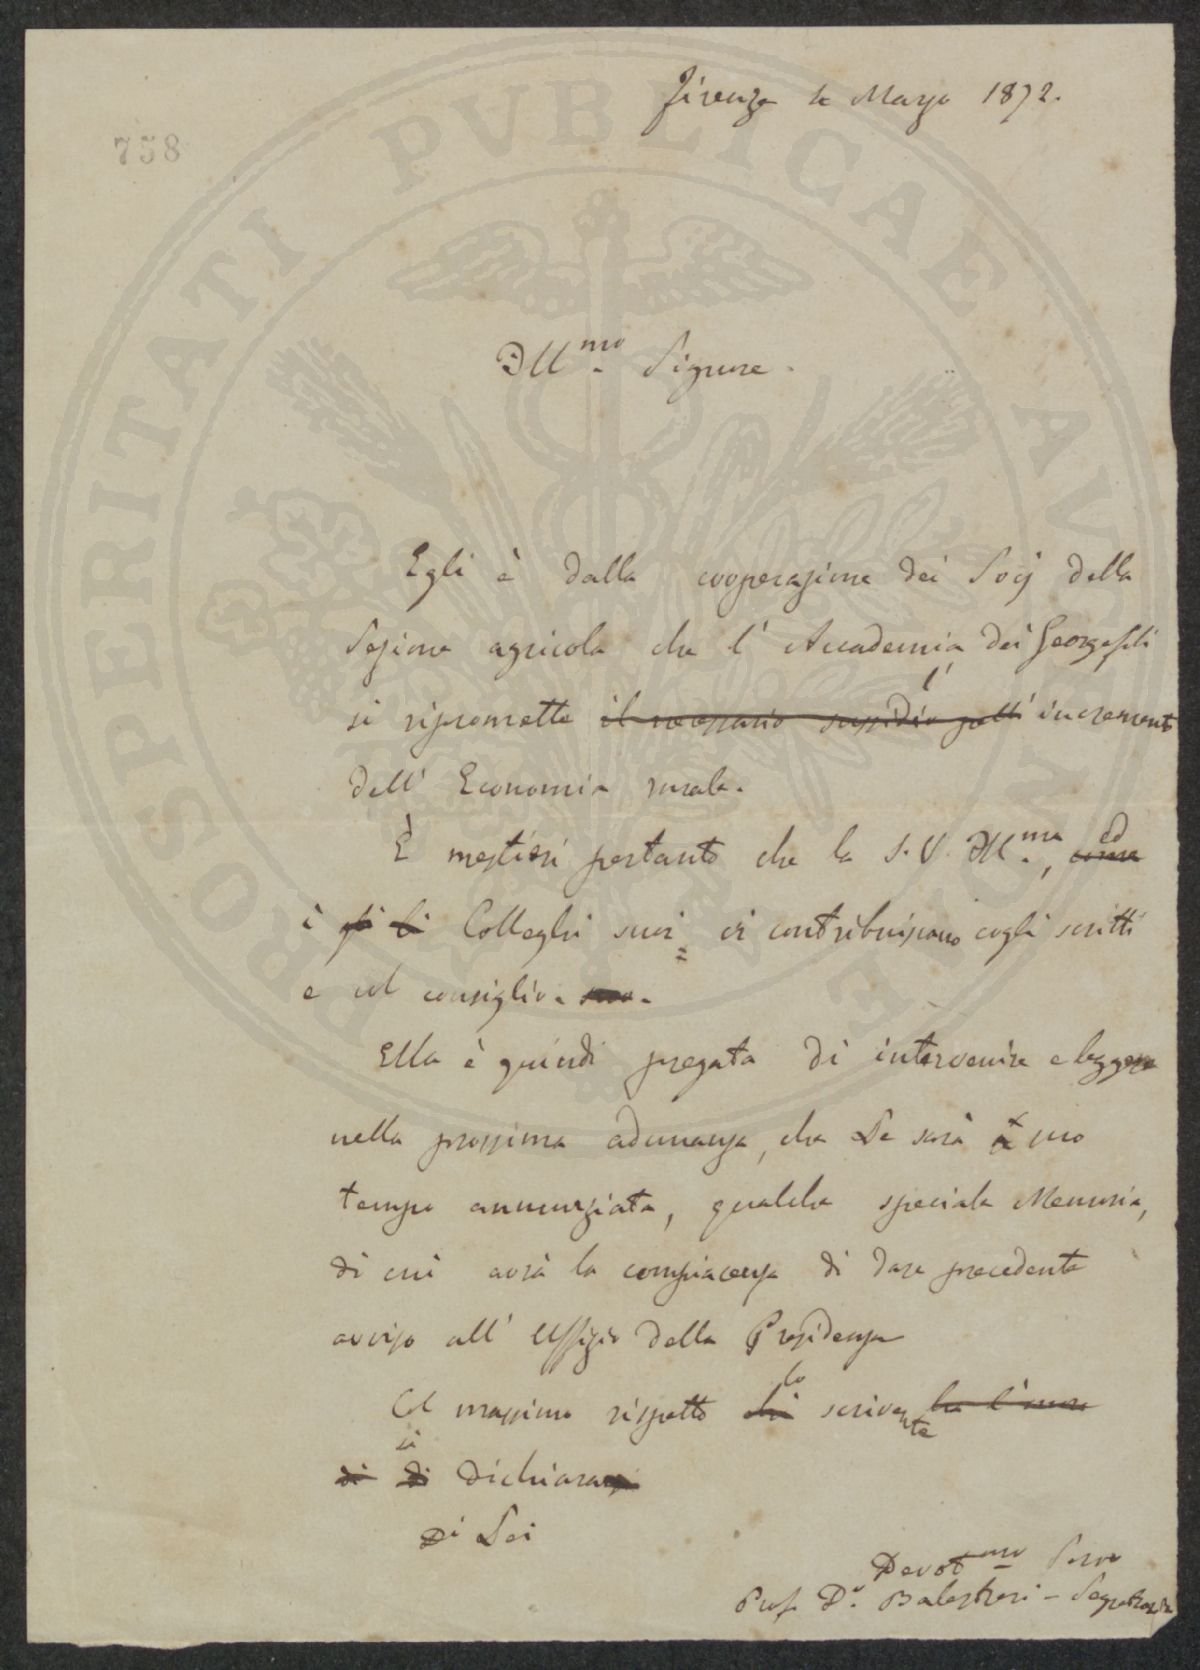 758
Firenze 4 Marzo 1872.
Ill.mo Signore.
Egli è dalla cooperazione dei Socj della
Sezione agricola che l'Accademia dei Georgofili
si ripromette il necessario sussidio pell' l' incremento
dell' Economia rurale.
È mestieri pertanto che la S. V. Ill.ma, come ed
i li Colleghi suoi ci contribuiscano cogli scritti
e col consiglio. suo.
Ella è quindi pregata di intervenire e leggere
nella prossima adunanza, che Le sarà a suo
tempo annunziata, qualche speciale Memoria,
di cui avrà la compiacenza di dare precedente
avviso all' Uffizio della Presidenza
Col massimo rispetto chi lo scrivente ha l'onore
di di si dichiara
Di Lei
Devot.mo Servo
Prof. D.r Balestreri - Segretario
PROSPERITATI PVBLICAE AVGENDAE